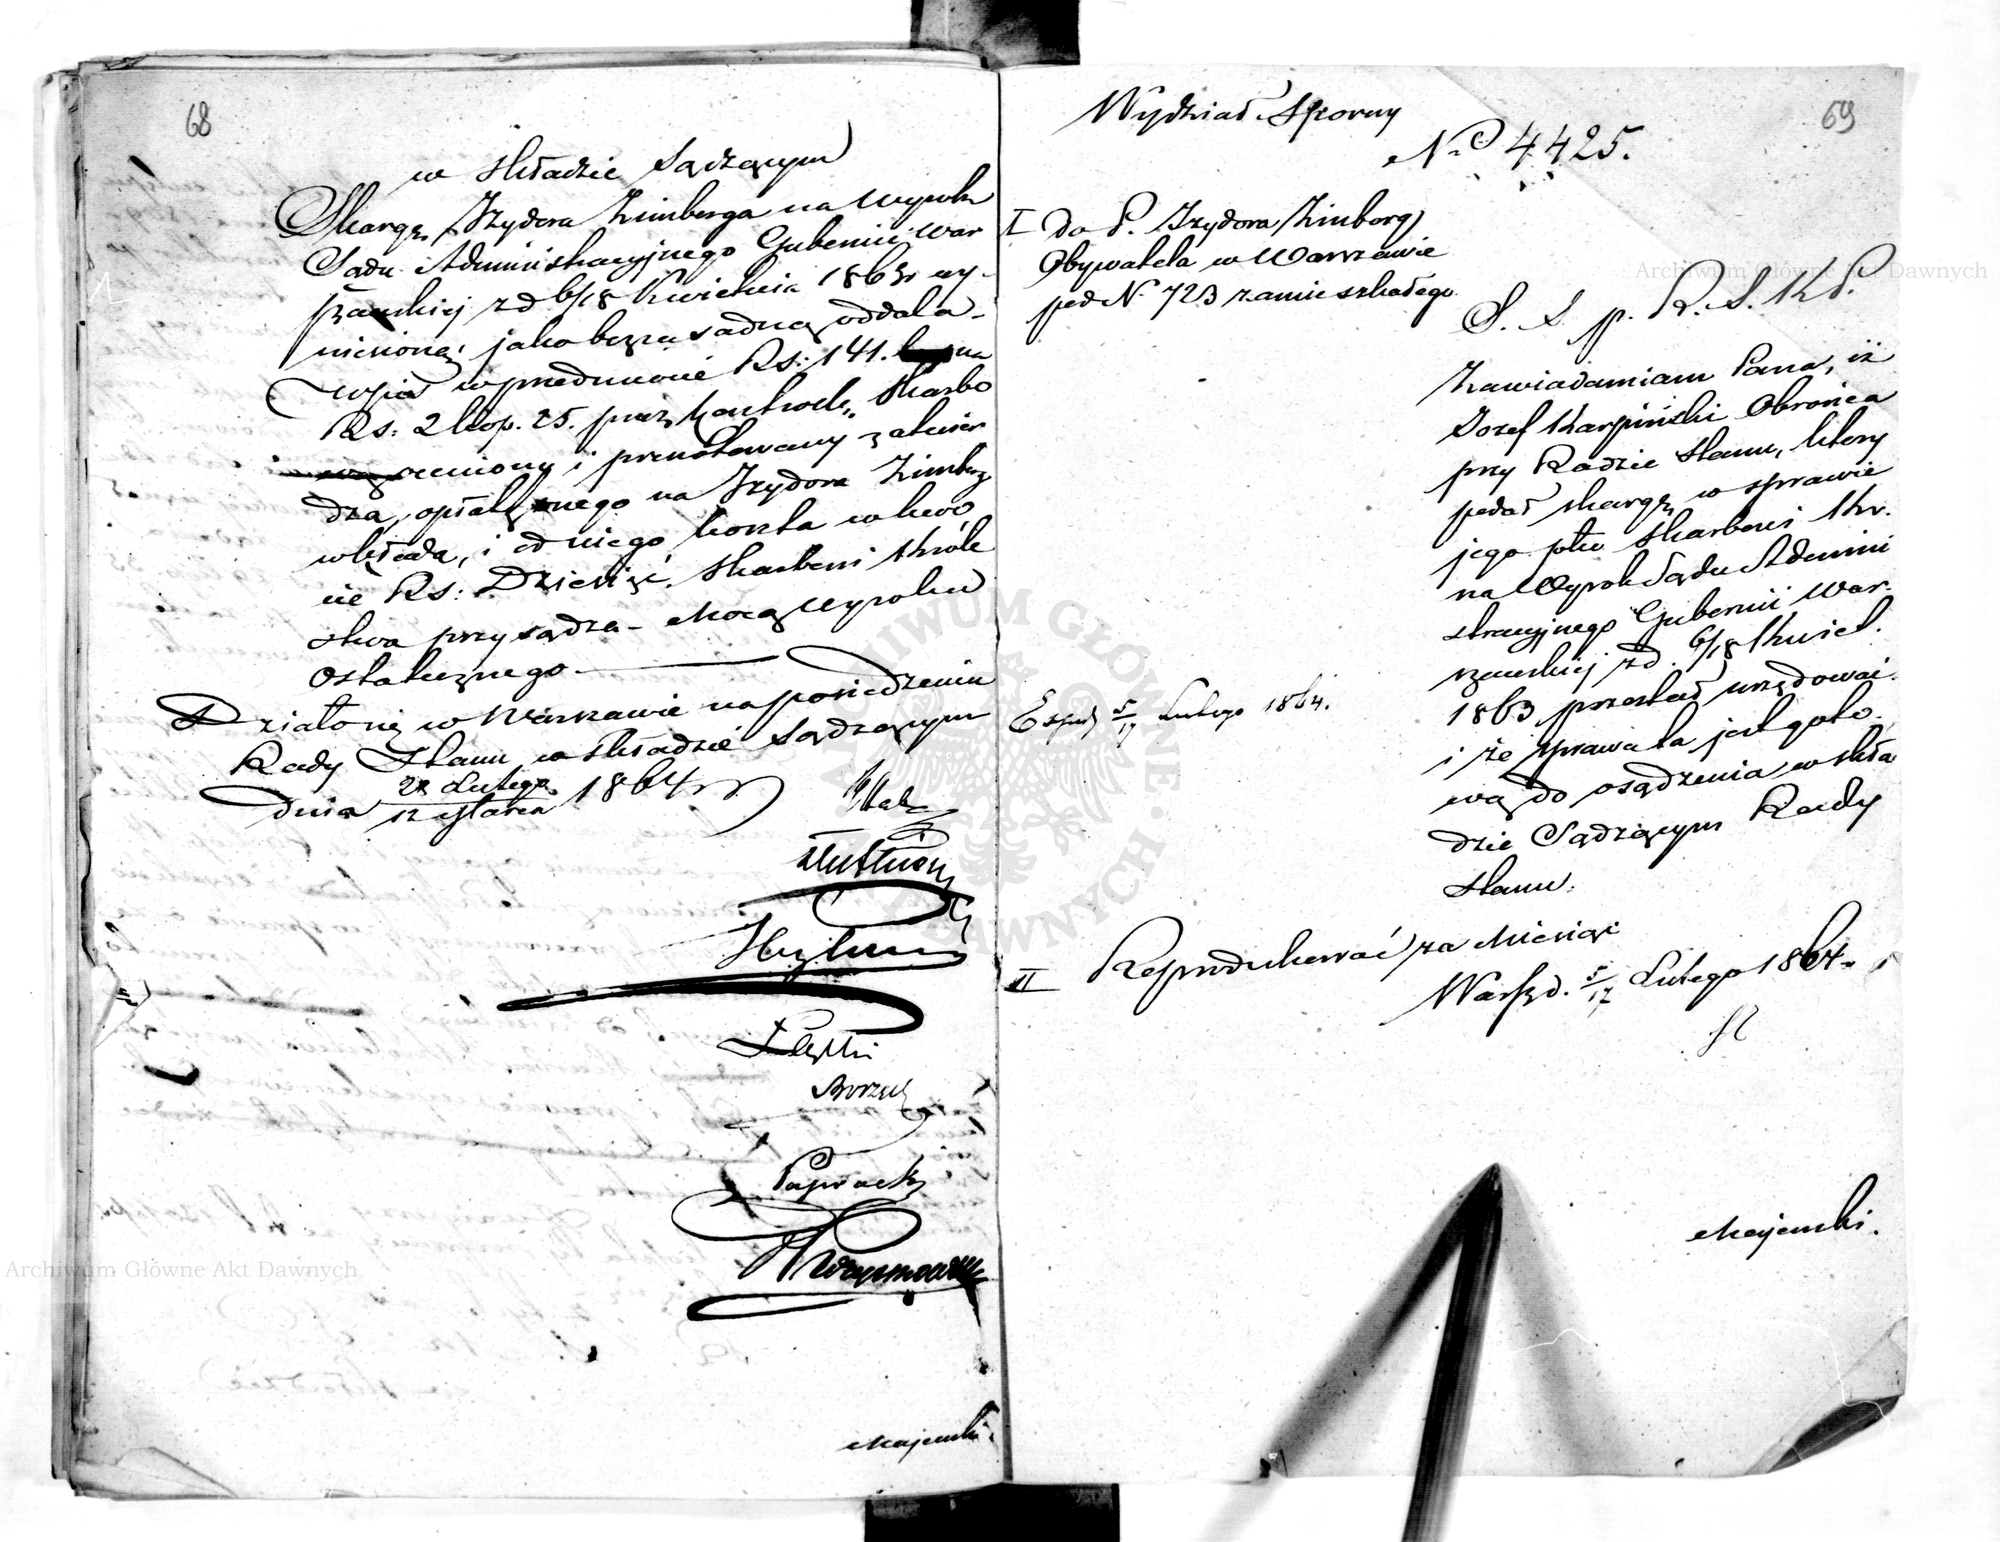 68
w Składzie Sądzącym
Skargę Izydora Zimberga na Wyrok
Sądu Administracyjnego Gubernii War
szawskiej z d 6/18 Kwietnia 1863 r wy-
niesioną, jako bezzasadną oddala-
wpis w przedmiocie Rs: 141. na
Rs: 2 kop. 25. przez Kontrolę Skarbo
wą oceniony i prenotowany zatwier
dza, opłatę nego na Izydora Zimberg
wkłada, i od niego koszta w kwo
cie Rs: Dziesięć Skarbowi Króle
stwa przysądza - Mocą Wyroku
Ostatecznego.
Działo się w Warszawie na posiedzeniu
Rady Stanu w Składzie Sądzącym
dnia 12 Marca 1864 r
Lutego
Papracki
Majewski.
69
Wydział Sporny
No 4425.
I Do P. Izydora Zimberg
Obywatela w Warszawie
pod N. 723 zamieszkałego
S. S. p. R. S. K P.
Zawiadamiam Pana, iż
Józef Karpiński Obrońca
przy Radzie Stanu, który
podał skargę w sprawie
jego ptko Skarbowi Kr.
na Wyrok Sądu Admini
stracyjnego Gubernii War.
szawskiej z d. 6/18 Kwiet.
1863 przestał urzędować
i że sprawa ta jest goto
wą do osądzenia w skła
dzie Sądzącym Rady
Stanu.
Exped 5/17 Lutego 1864.
II Reprodukować za Miesiąc
Warsz d. 5/17 Lutego 1864.
Majewski.
Archiwum Główne Akt Dawnych
Archiwum Główne Akt Dawnych
ARCHIWUM GŁÓWNE AKT DAWNYCH